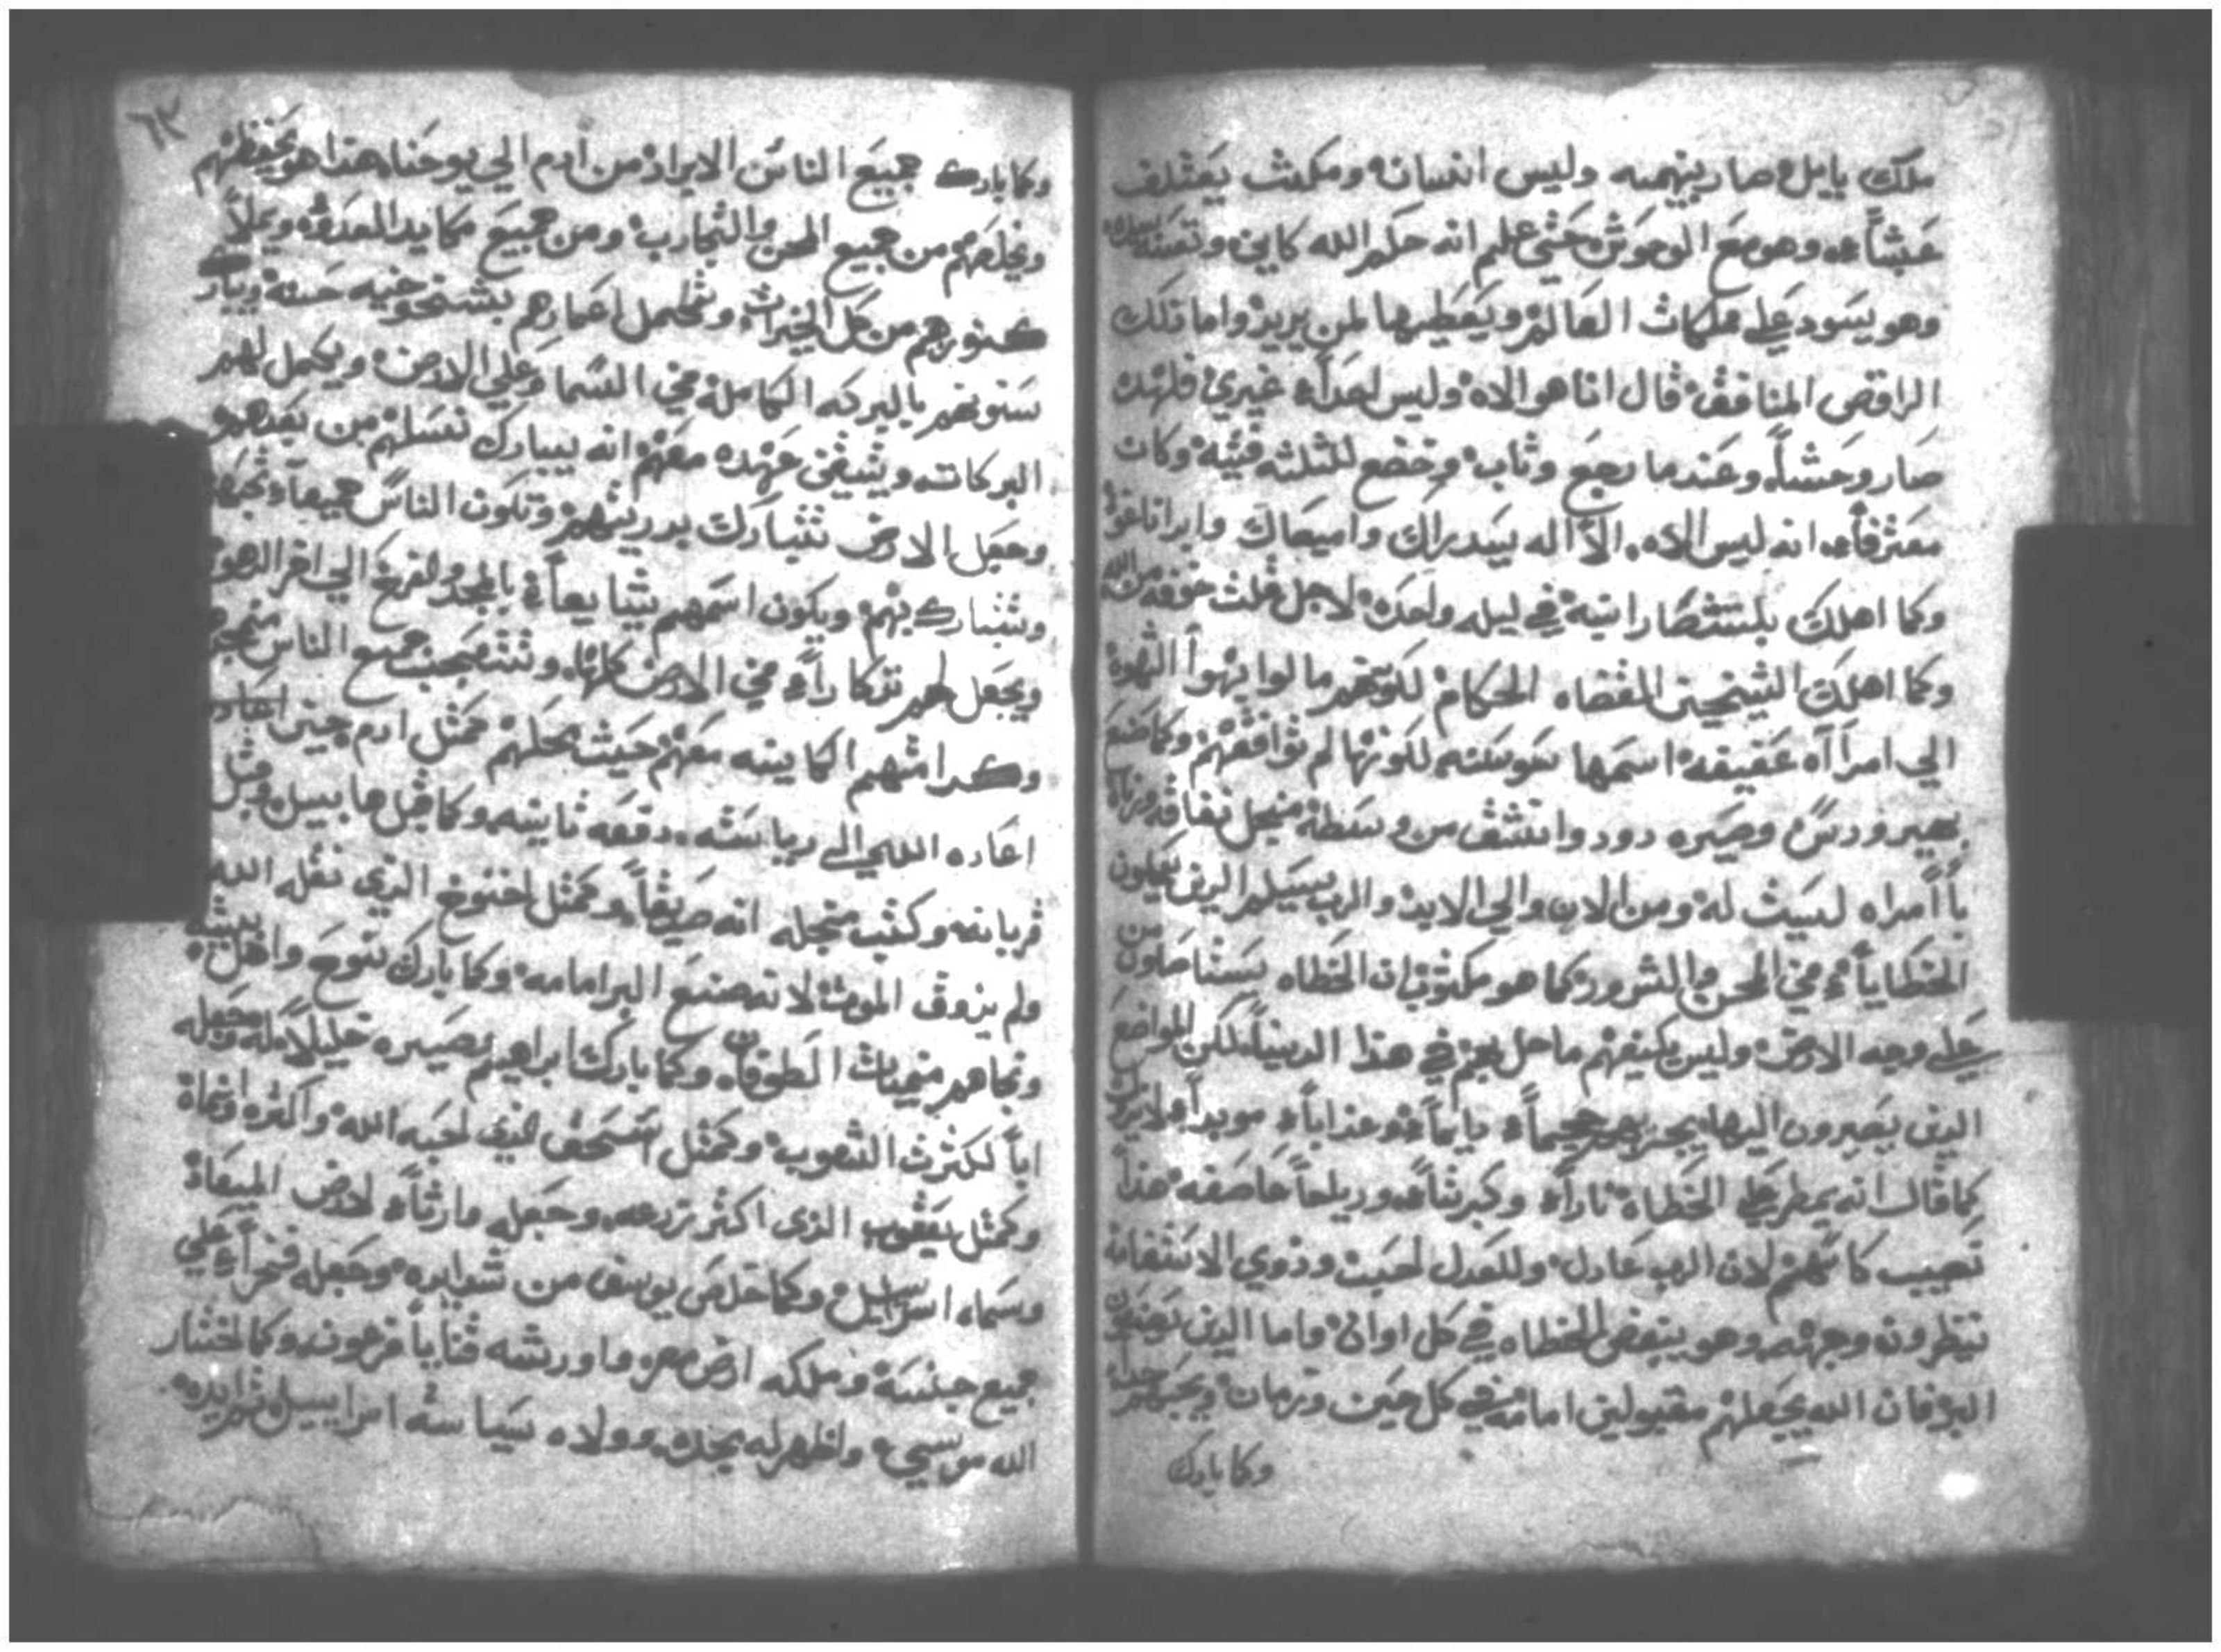 ملك بابل صار بهيمه وليس انسان ومكث يعتلف
عشباً وهو مع الوحوش حتي علم انه حكم الله كاين
وهو يسود علي مملكات العالم ويعطيها لمن يريد واما تلك
المنافق قال انا هو الاه وليس احداً غيري فلهذه
صار وحشاً وعندما رجع وتاب وخضع للثلثه فتيه وكان
معترفاً انه ليس الاه الا اله سيدراك واميصاك
وكما اهلك في ليله واحده لاجل قلت خوفه من الله
وكما اهلك الشيخين القضاه الحكام لكونهم مالوا بهوا الشهوه
الي امرااه عفيفه اسمها سوسنه لكونها لم توافقهم وكما صنع
بهيرودس وصيره دود وانشق من وسطه منجل نفاقه
باامراه ليست له ومن الان والي الابد والرب يسلم الذين يعملون
الخطايا في المحن والشرور كما هو مكتوب ان الخطاه يستاصلون من
علي وجه الارض وليس يكفيهم ما حل بهم في هذا الدنيا لكن المواضع
الذين يصيرون اليها يجدو جحيماً دايماً وعذاباً موبداً
كما قال انه يمطر علي الخطاه ناراً وكبريتاً وريحاً عاصفه هذا
نصيب كاسهم لان الرب عادل وللعدل احب وذوي الاستقامه
ينظرون وجهه وهو يبغض الخطاه في كل اوان واما الذين يصنعون
البر فان الله يجعلهم مقبولين امامه في كل حين وزمان
وكما بارك
٦٣
وكما بارك جميع الناس الابرار من ادم الي يوحنا هذا هو يحفظهم
ويخلصهم من جميع المحن والتجارب ومن جميع مكايد العدو ويملا
كنوزهم من كل الخيرات وتكمل اعمارهم بشيخوخيه حسنه ويبارك
سنونهم بالبركه الكامله في السما وعلي الارض ويكمل لهم
البركات ويثبت عهده معهم انه يبارك نسلهم من بعدهم
وجعل الارض تتبارك بذريتهم وتكون الناس جميعاً
وتتبارك بهم ويكون اسمهم بالمجد والفرح الي اخر الدهور
ويجعل لهم تذكاراً في الارض كلها وتتعجب جميع الناس
وكرامتهم الكاينه معهم حيث يجعلهم كمثل ادم حين اعاده
اعاده الله الي رياسته دفعه ثانيه وكما قبل هابيل وقبل
قربانه وكتب منجله انه صديقاً وكمثل اخنوخ الذي نقله الله
ولم يذوق الموت لانه صنع البر امامه وكما بارك نوح واهل بيته
ونجاهم من مياه الطوفان وكما بارك ابراهيم وصيره خليلاً له وجعله
اباً لكثرت الشعوب وكمثل اسحق الذي احبه الله واكثره
وكمثل يعقوب الذي اكثر زرعه وجعله وارثاً لارض الميعاد
وسماه اسراييل وكما خلص يوسف من شدايده وجعله فخراً علي
جميع جنسه وملكه ارض مصر واورثه فرعون وكما اختار
الله موسي واظهر له مجده وولاه سياسه اسراييل